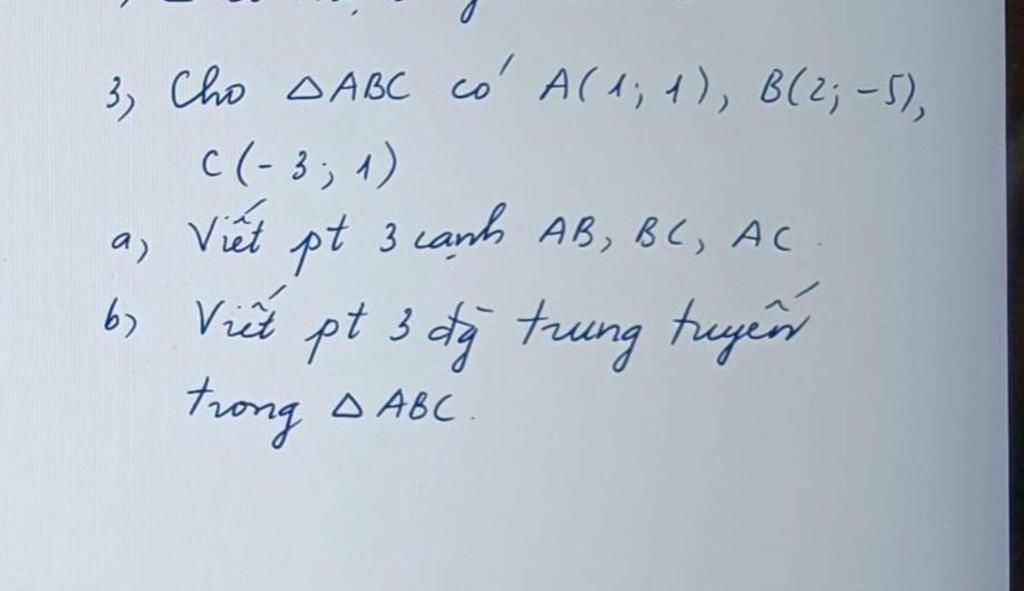 3, Cho △ABC có A(1; 1), B(2; -5),
C(-3; 1)
a, Viết pt 3 cạnh AB, BC, AC.
b, Viết pt 3 đg̀ trung tuyến
trong △ABC.